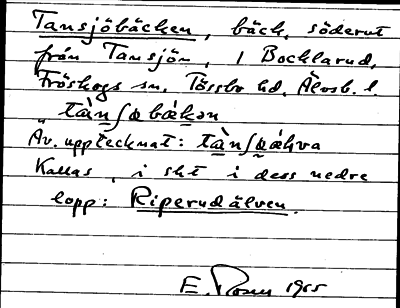 Tansjöbäcken, bäck, söderut
från Tansjön, i Bocklarud,
Fröskogs sn, Tössbo hd, Älvsb. l.
tàn ʃøbækən
Äv. upptecknat: tàn ʃøækva
Kallas, i sht i dess nedre
lopp: Riperudälven.
E. Rosén 1955